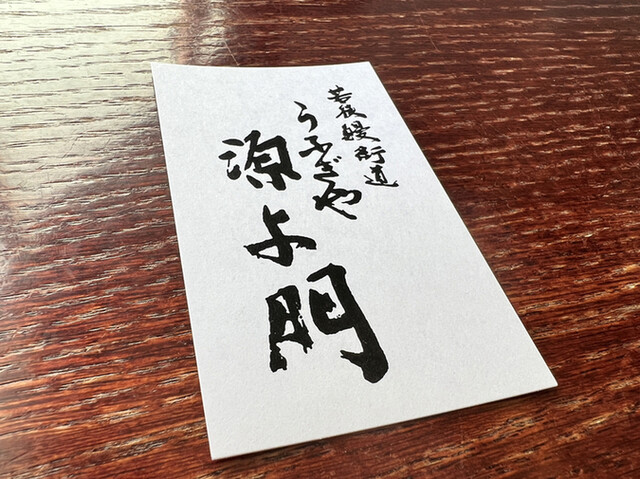 若狭鰻街道
うなぎや
源与門